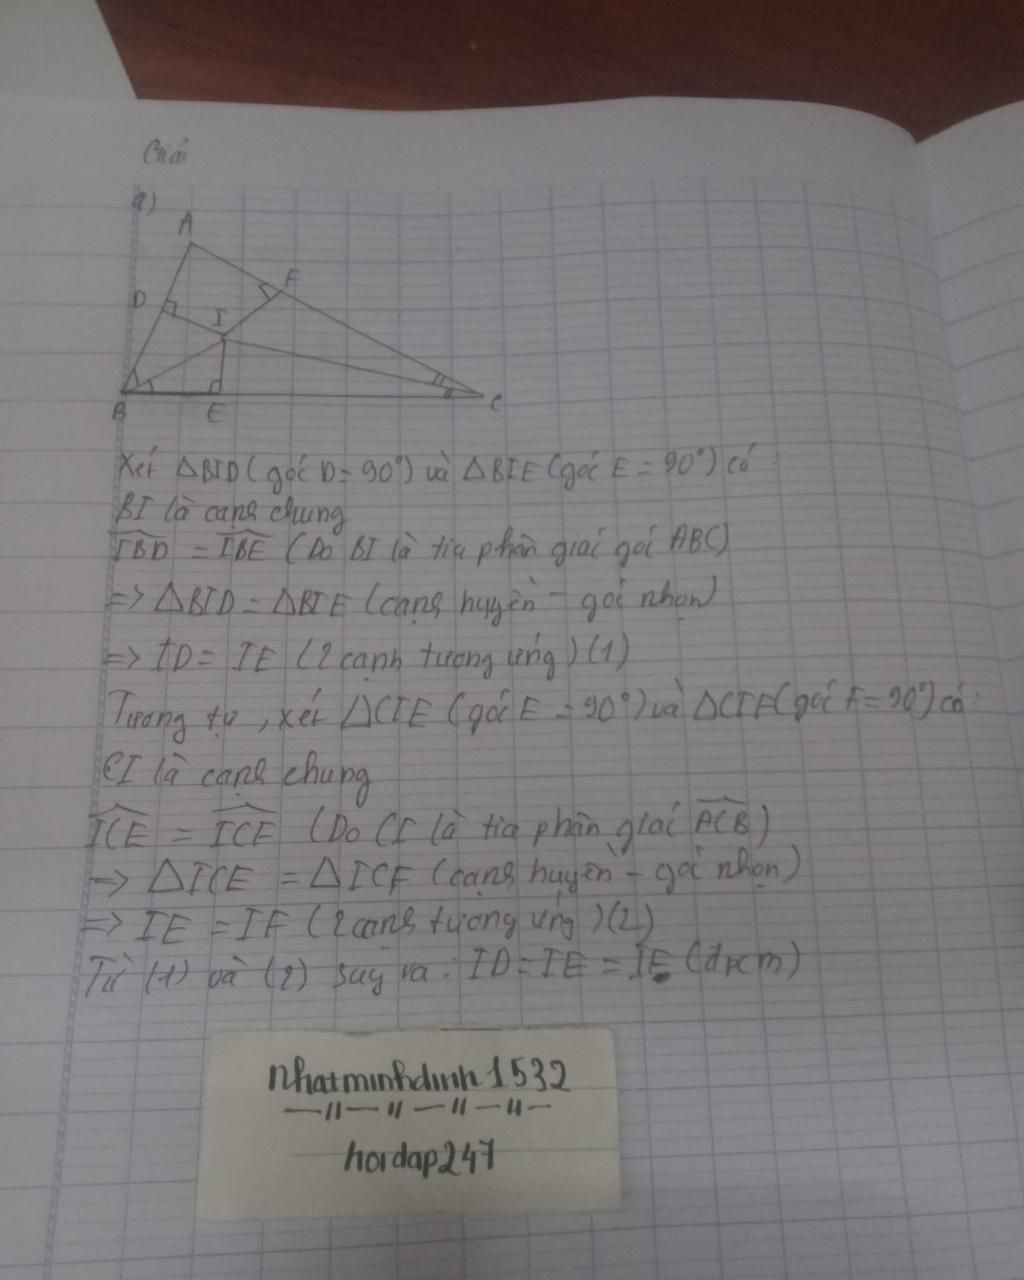 Giải
a)
A
D
F
I
B
E
C
Xét ΔBID (góc D = 90°) và ΔBIE (góc E = 90°) có
BI là cạnh chung
IBD = IBE (Do BI là tia phân giác góc ABC)
=> ΔBID = ΔBIE (cạnh huyền - góc nhọn)
=> ID = IE (2 cạnh tương ứng) (1)
Tương tự, xét ΔCIE (góc E = 90°) và ΔCIF (góc F = 90°) có:
CI là cạnh chung
ICE = ICF (Do CI là tia phân giác ACB)
=> ΔICE = ΔICF (cạnh huyền - góc nhọn)
=> IE = IF (2 cạnh tương ứng) (2)
Từ (1) và (2) suy ra: ID = IE = IF (đpcm)
nhatminhdinh1532
hoidap247